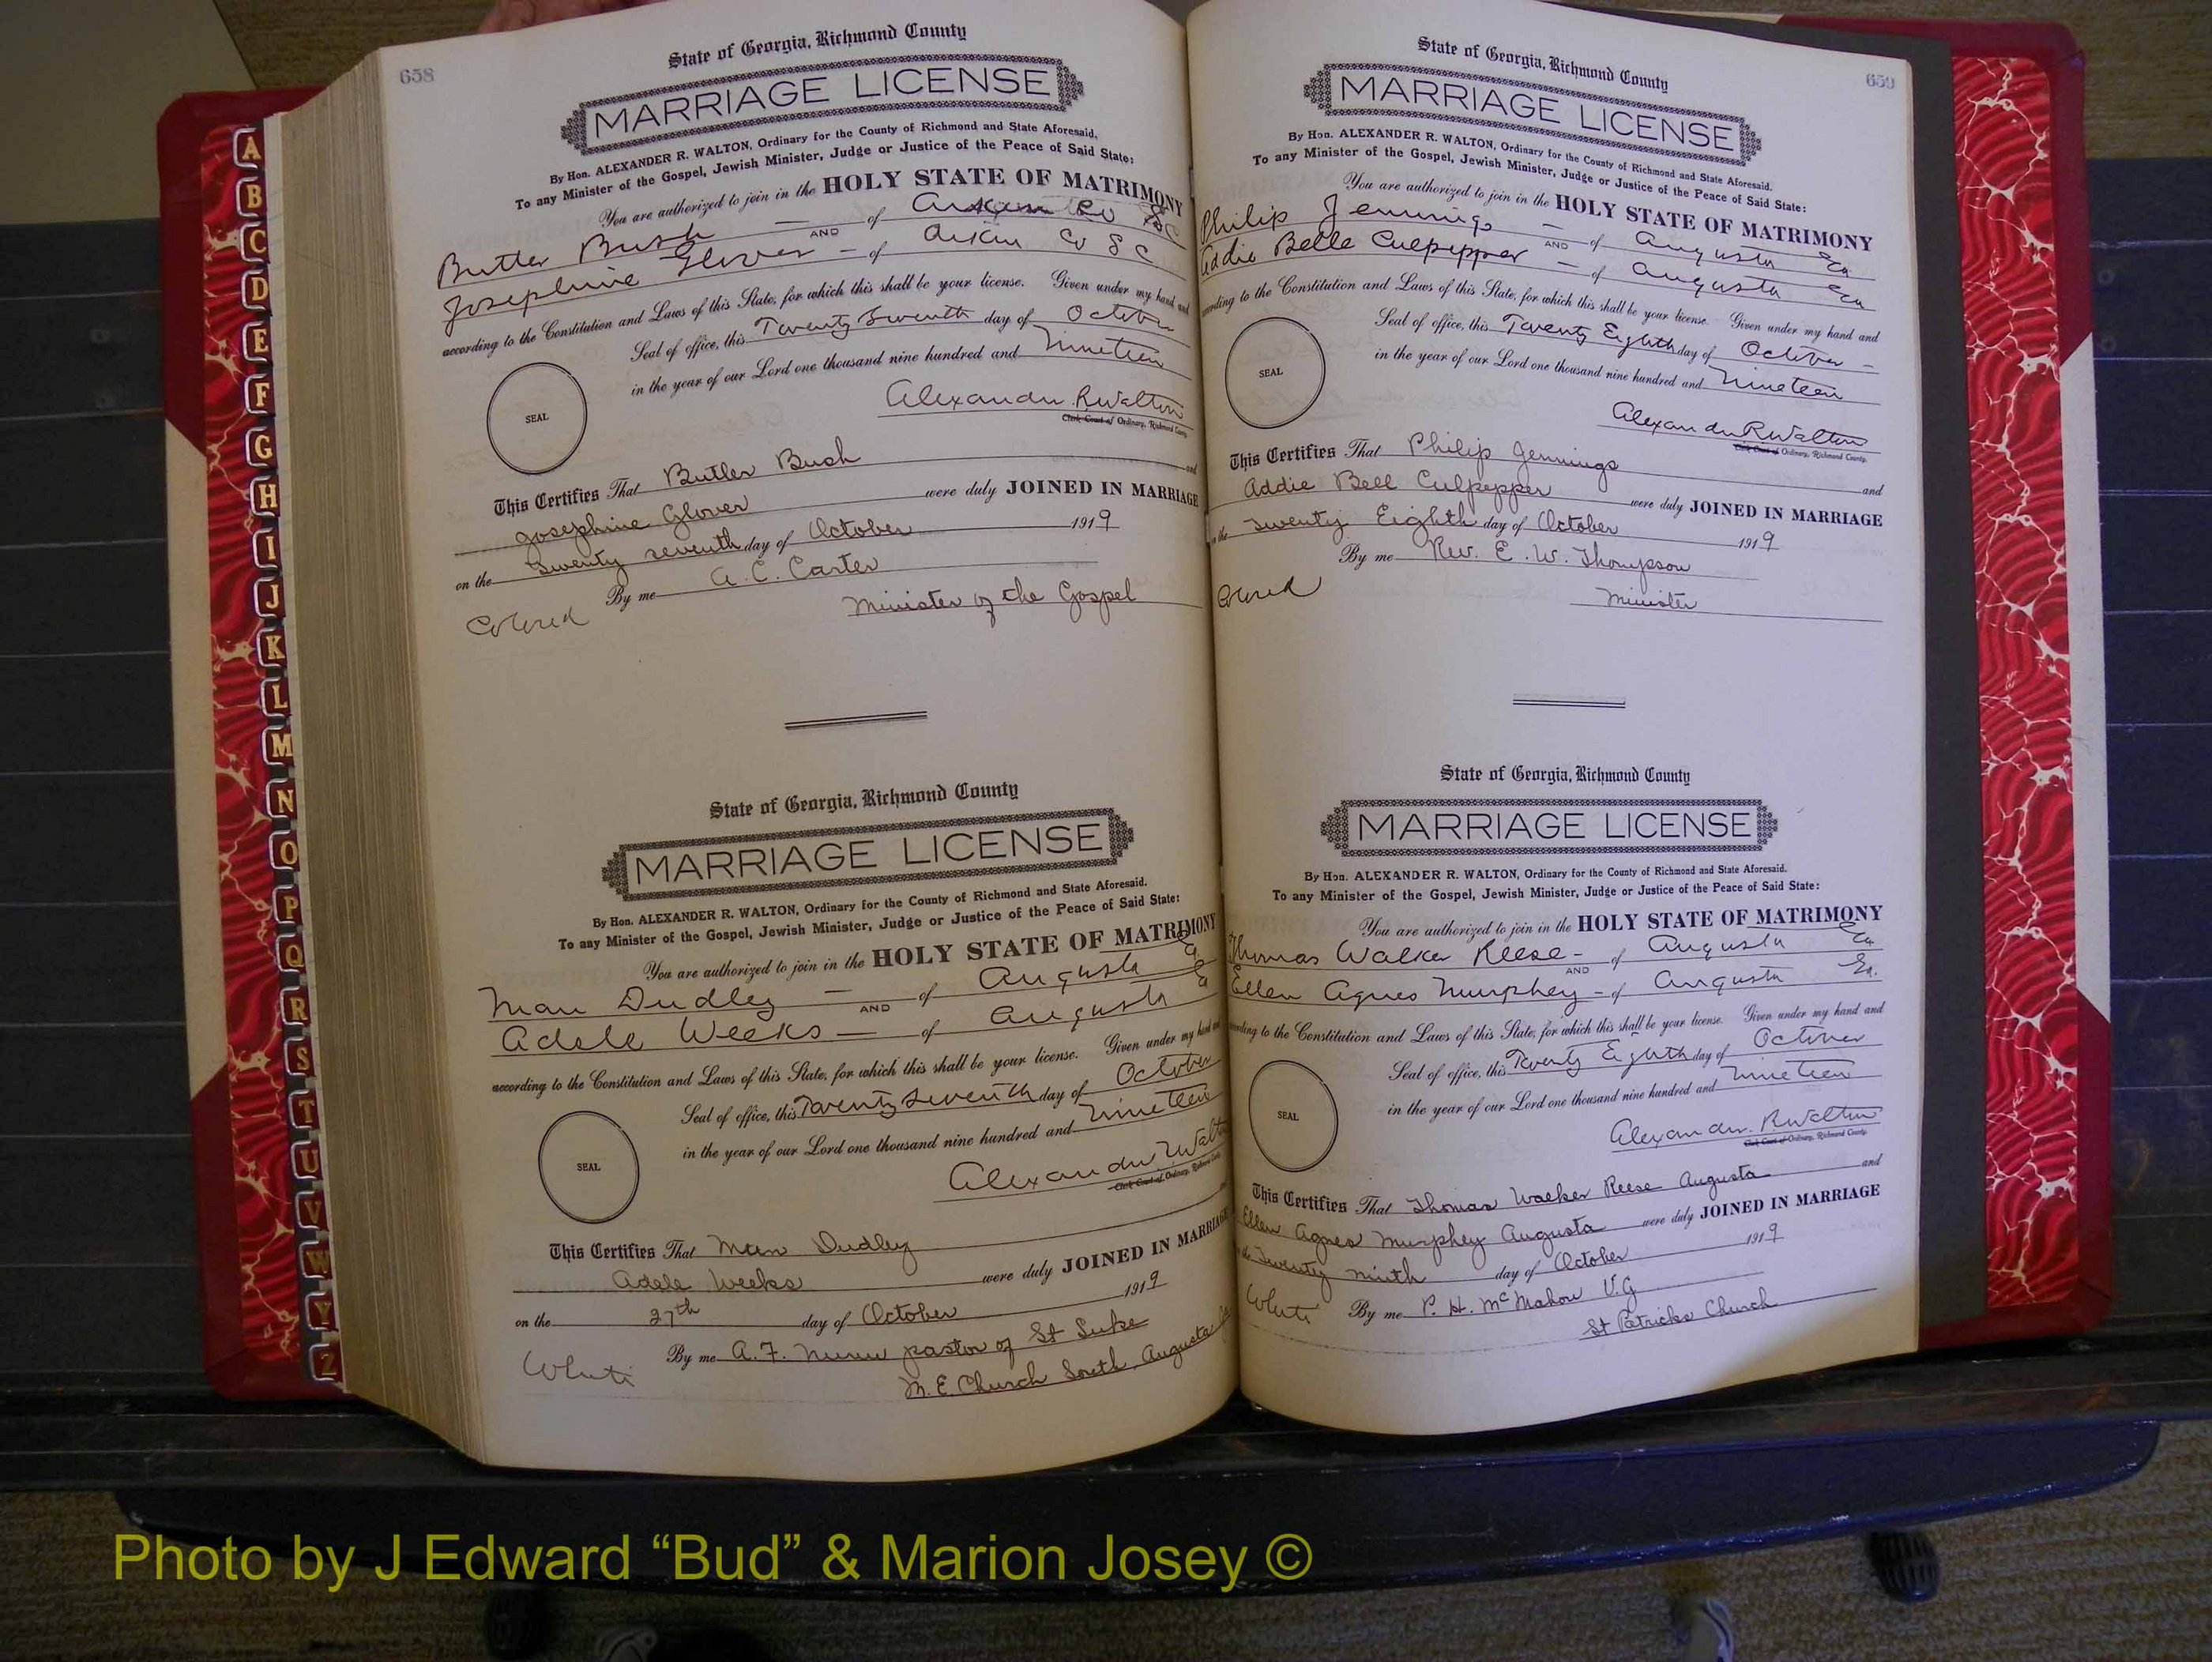 658
State of Georgia, Richmond County
MARRIAGE LICENSE
By Hon. ALEXANDER R. WALTON, Ordinary for the County of Richmond and State Aforesaid.
To any Minister of the Gospel, Jewish Minister, Judge or Justice of the Peace of Said State:
You are authorized to join in the HOLY STATE OF MATRIMONY
Butler Bush — of Co S C
AND
Josephine Glover — of Aikin Co S C
according to the Constitution and Laws of this State, for which this shall be your license. Given under my hand and
Seal of office, this Twenty Seventh day of October
in the year of our Lord one thousand nine hundred and Nineteen
SEAL
Alexander R Walton
Clerk Court of Ordinary, Richmond County.
This Certifies That Butler Bush and
Josephine Glover were duly JOINED IN MARRIAGE
on the twenty seventh day of October 1919
By me A. C. Carter
Colored Minister of the Gospel
State of Georgia, Richmond County
MARRIAGE LICENSE
By Hon. ALEXANDER R. WALTON, Ordinary for the County of Richmond and State Aforesaid.
To any Minister of the Gospel, Jewish Minister, Judge or Justice of the Peace of Said State:
You are authorized to join in the HOLY STATE OF MATRIMONY
Dudley — of Augusta Ga
AND
Adele Weeks — of Augusta Ga
according to the Constitution and Laws of this State, for which this shall be your license. Given under my hand and
Seal of office, this Twenty Seventh day of October
in the year of our Lord one thousand nine hundred and nineteen
SEAL
Alexander R Walton
Clerk Court of Ordinary, Richmond County.
This Certifies That Dudley
Adele Weeks were duly JOINED IN MARRIAGE
on the 27th day of October 1919
White By me A. F. pastor of St Luke
M. E. Church South, Augusta
659
State of Georgia, Richmond County
MARRIAGE LICENSE
By Hon. ALEXANDER R. WALTON, Ordinary for the County of Richmond and State Aforesaid.
To any Minister of the Gospel, Jewish Minister, Judge or Justice of the Peace of Said State:
You are authorized to join in the HOLY STATE OF MATRIMONY
Philip Jennings — of Augusta Ga
AND
Addie Belle Culpepper — of Augusta Ga
according to the Constitution and Laws of this State, for which this shall be your license. Given under my hand and
Seal of office, this Twenty Eighth day of October —
in the year of our Lord one thousand nine hundred and Nineteen
SEAL
Alexander R Walton
Clerk Court of Ordinary, Richmond County.
This Certifies That Philip Jennings and
Addie Bell Culpepper were duly JOINED IN MARRIAGE
on the twenty Eighth day of October 1919
By me Rev. E. W. Thompson
Colored Minister
State of Georgia, Richmond County
MARRIAGE LICENSE
By Hon. ALEXANDER R. WALTON, Ordinary for the County of Richmond and State Aforesaid.
To any Minister of the Gospel, Jewish Minister, Judge or Justice of the Peace of Said State:
You are authorized to join in the HOLY STATE OF MATRIMONY
Thomas Walker Reese - of Augusta Ga
AND
Ellen Agnes Murphey - of Augusta Ga.
according to the Constitution and Laws of this State, for which this shall be your license. Given under my hand and
Seal of office, this Twenty Eighth day of October
in the year of our Lord one thousand nine hundred and nineteen
SEAL
Alexander R Walton
Clerk Court of Ordinary, Richmond County.
This Certifies That Thomas Walker Reese Augusta and
Ellen Agnes Murphey Augusta were duly JOINED IN MARRIAGE
on the Twenty ninth day of October 1919
White By me P. H. McMahon V.G
St Patricks Church
A
B
C
D
E
F
G
H
I
J
K
L
M
N
O
P
Q
R
S
T
U
V
W
Y
Z
Photo by J Edward “Bud” & Marion Josey ©